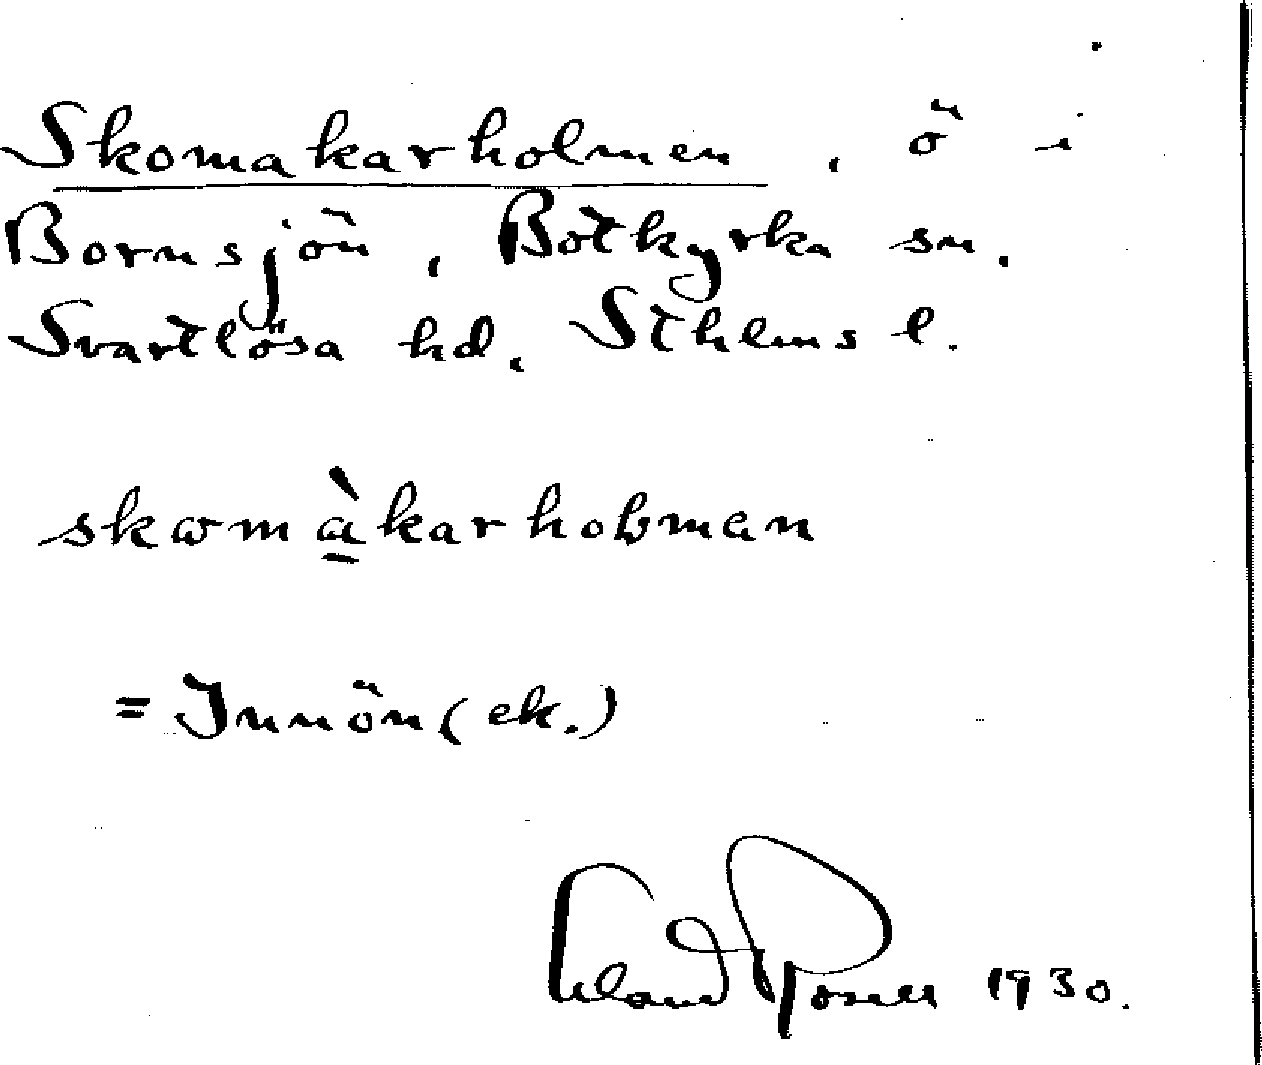 Skomakarholmen, ö i
Bornsjön, Botkyrka sn.
Svartlösa hd, Sthlms l.
skɷmàkarhoƚmɑn
= Innön (ek.)
Erland Rosell 1930.